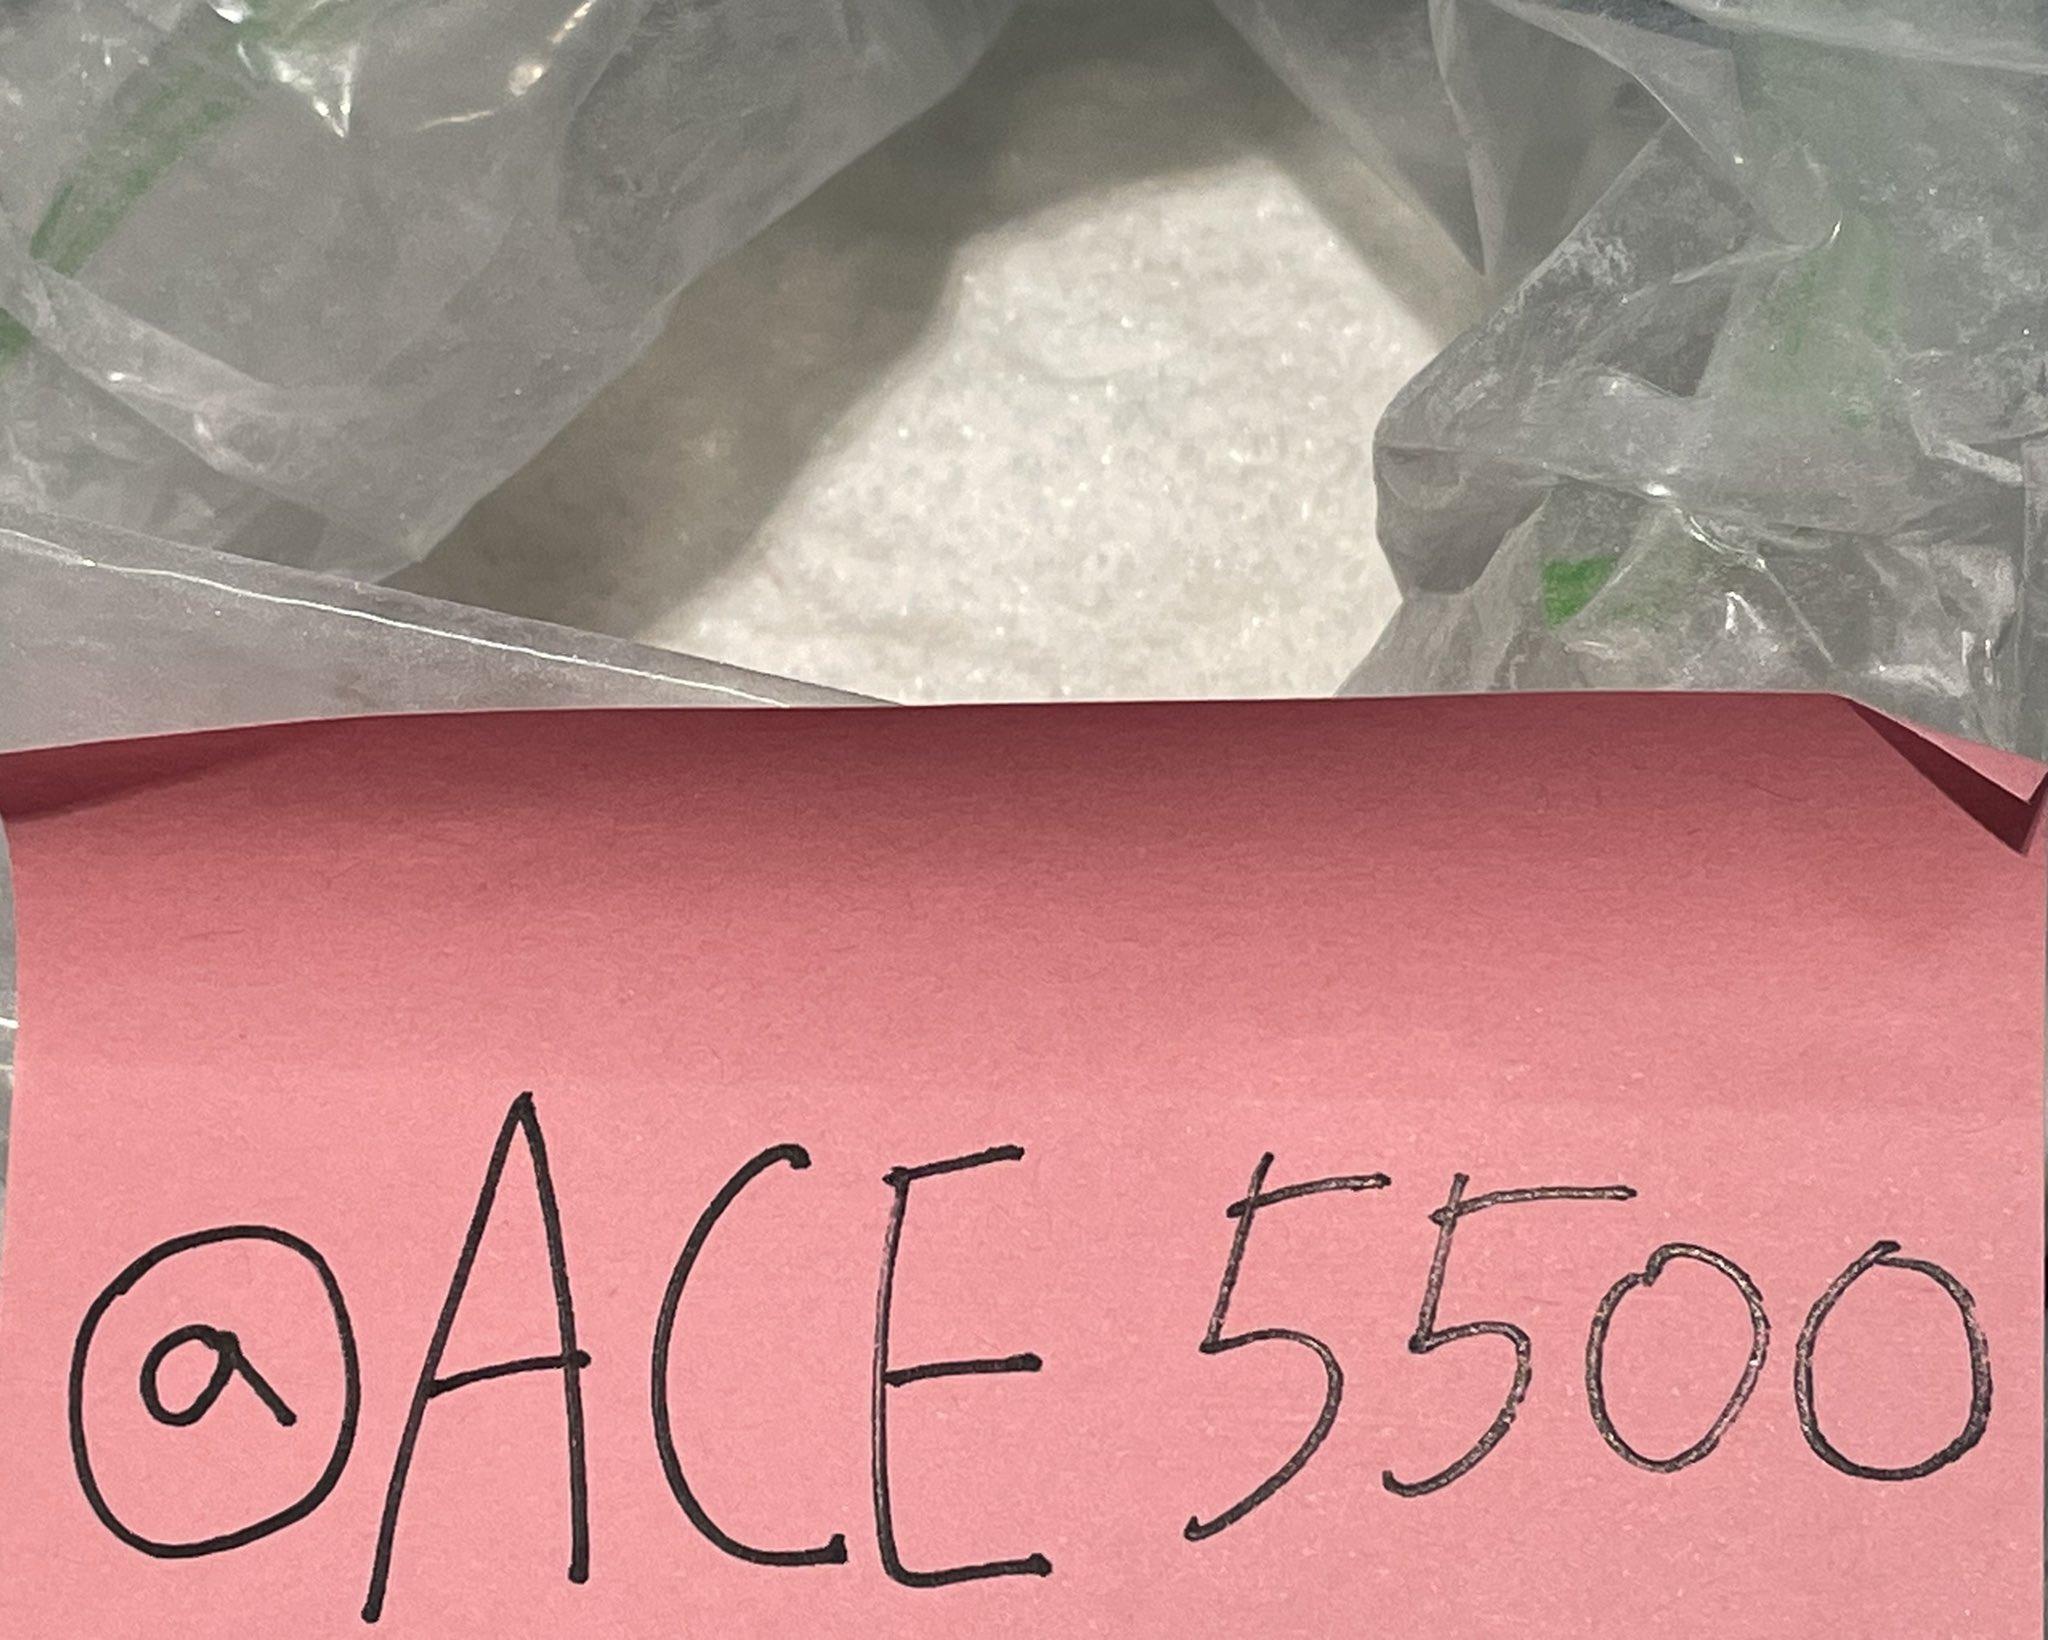 @ACE 5500